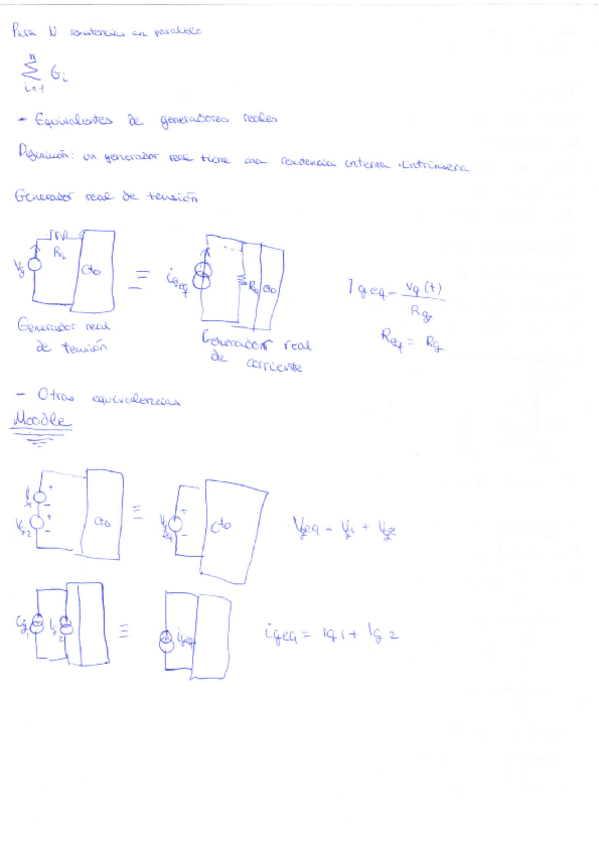 Para N resistencias en paralelo
n
∑ Gi
i=1
- Equivalentes de generadores reales
Definición: un generador real tiene una resistencia interna intrínseca
Generador real de tensión
Rg
Vg
Cto
≡
igeq
Rg
Cto
Igeq = vg(t) / Rg
Req = Rg
Generador real
de tensión
Generador real
de corriente
- Otras equivalencias
Moodle
+
-
Vg2
+
-
Cto
≡
+
-
Cto
Vgeq = Vg1 + Vg2
ig1
ig2
≡
igeq
igeq = ig1 + ig2